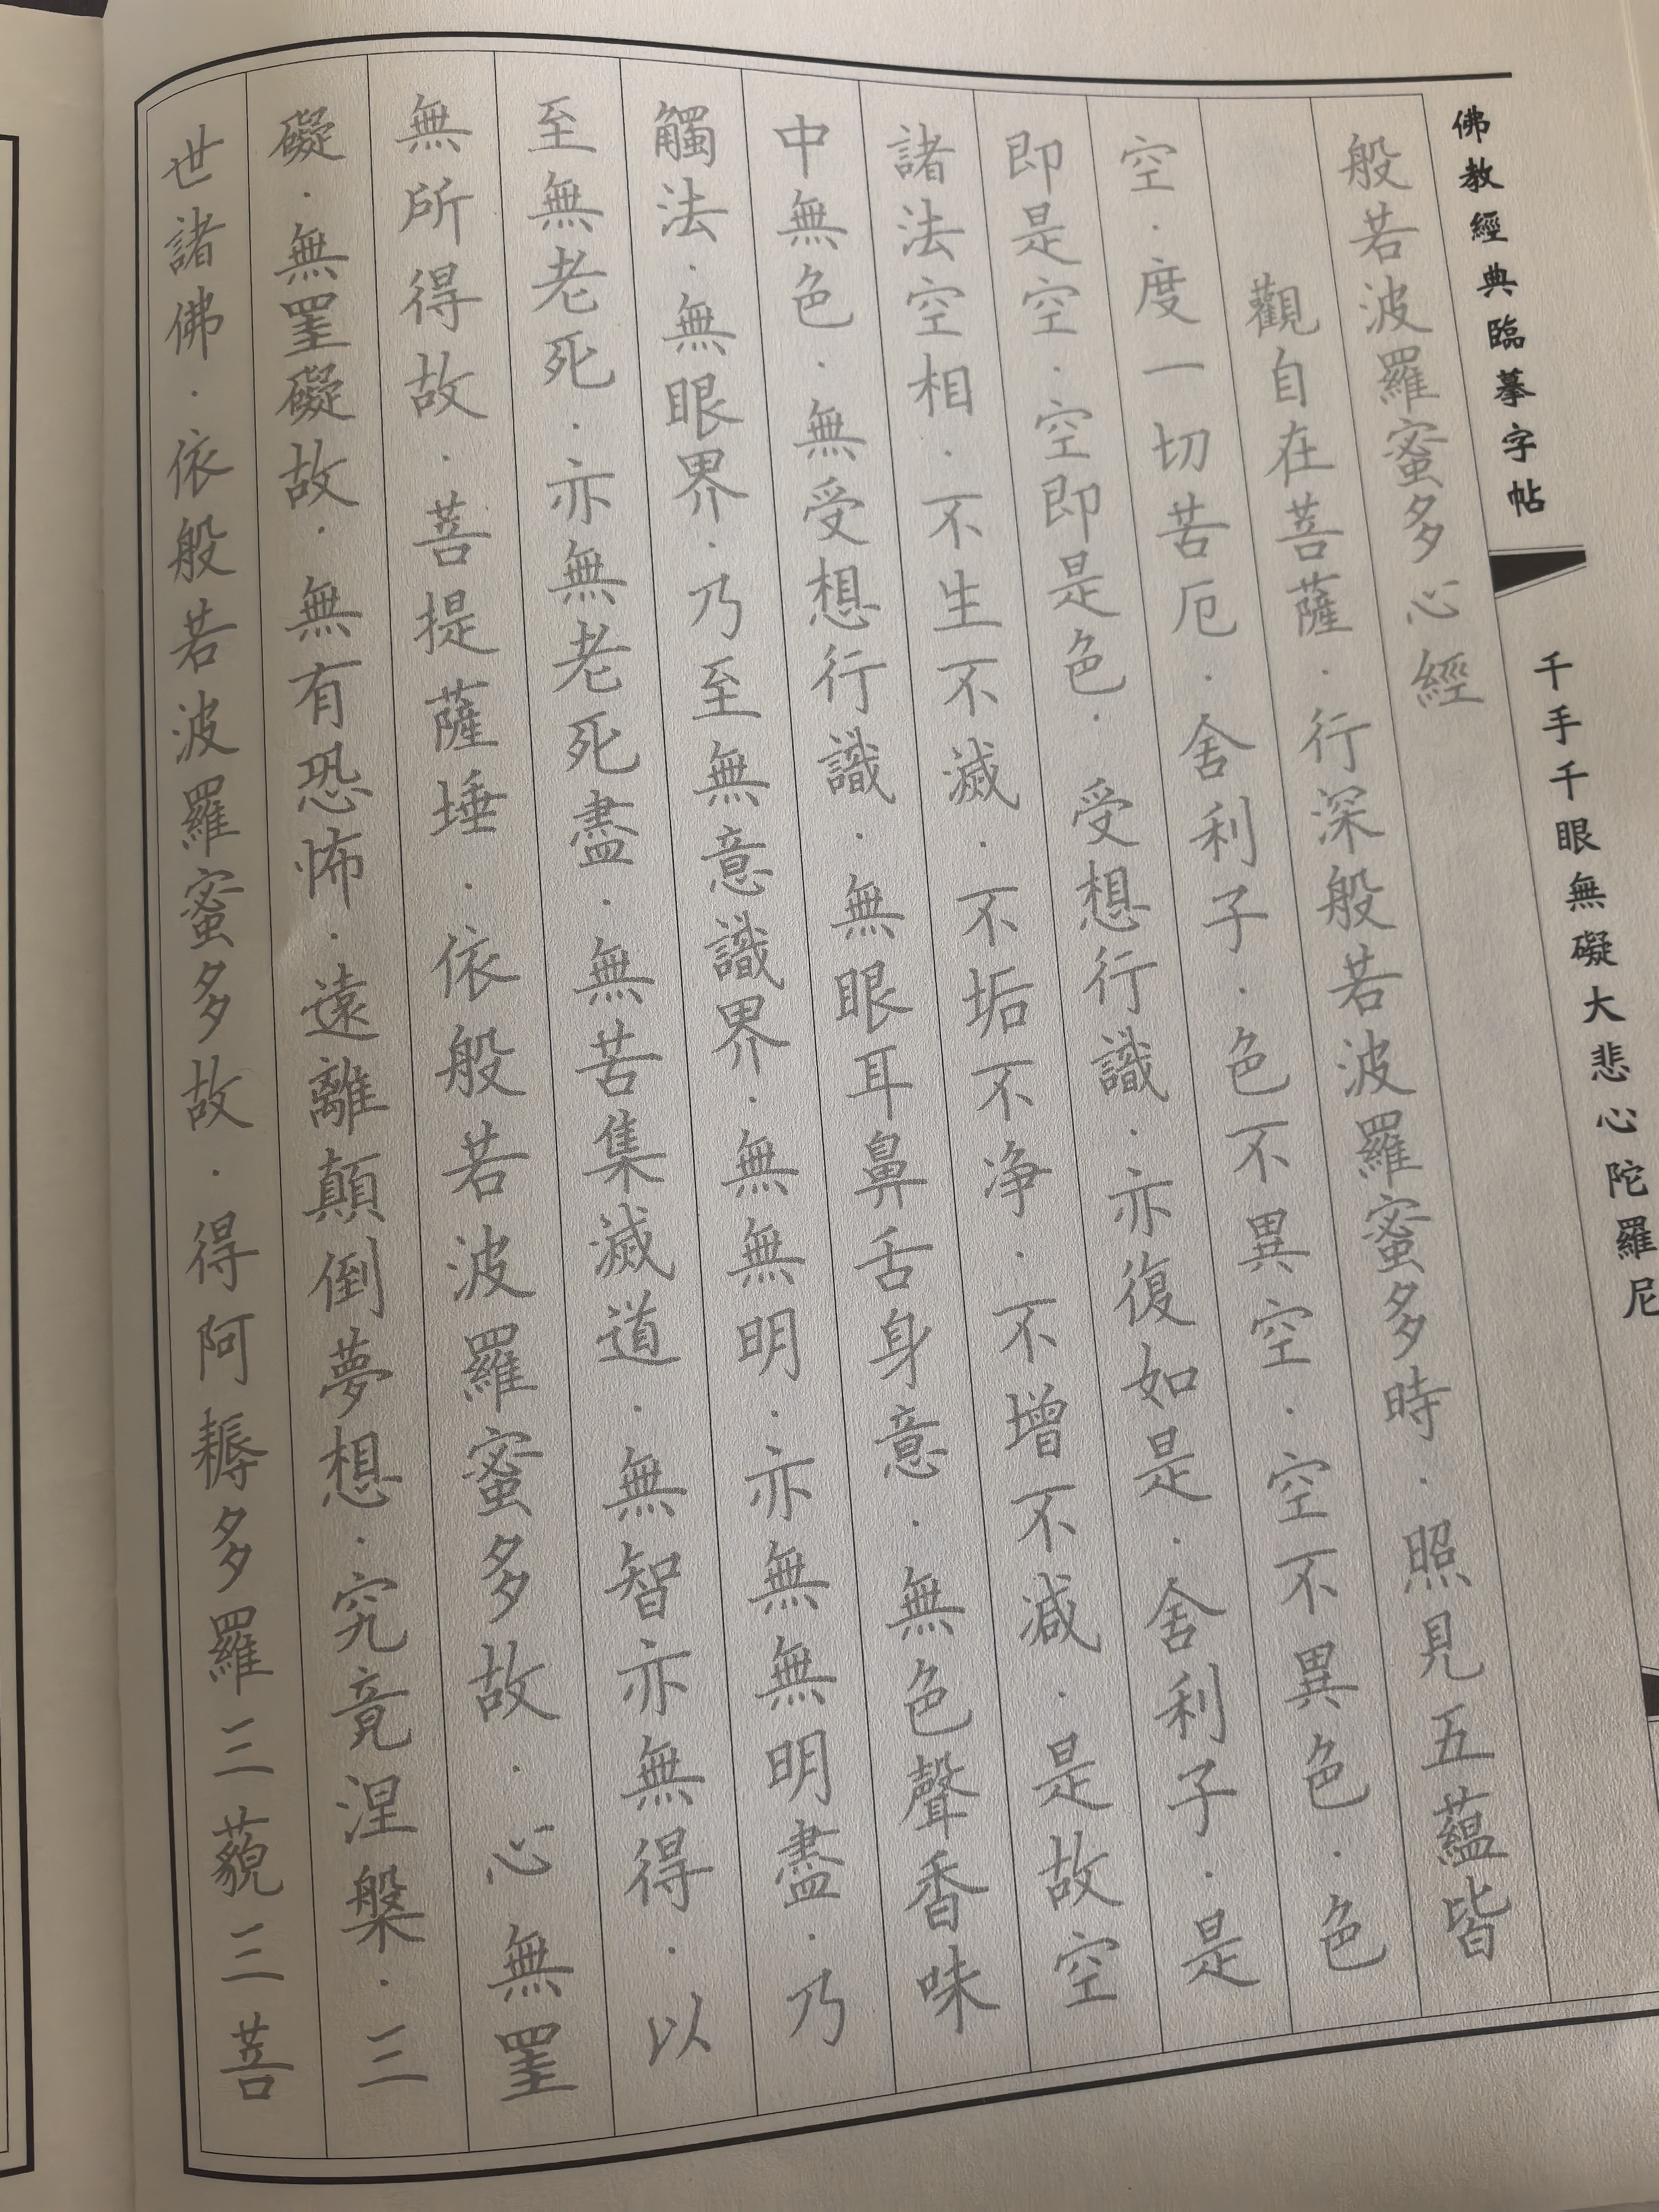 佛教經典臨摹字帖
千手千眼無礙大悲心陀羅尼
般若波羅蜜多心經
觀自在菩薩·行深般若波羅蜜多時·照見五蘊皆
空·度一切苦厄·舍利子·色不異空·空不異色·色
即是空·空即是色·受想行識·亦復如是·舍利子·是
諸法空相·不生不滅·不垢不净·不增不減·是故空
中無色·無受想行識·無眼耳鼻舌身意·無色聲香味
觸法·無眼界·乃至無意識界·無無明·亦無無明盡·乃
至無老死·亦無老死盡·無苦集滅道·無智亦無得·以
無所得故·菩提薩埵·依般若波羅蜜多故·心無罣
礙·無罣礙故·無有恐怖·遠離顛倒夢想·究竟涅槃·三
世諸佛·依般若波羅蜜多故·得阿耨多羅三藐三菩